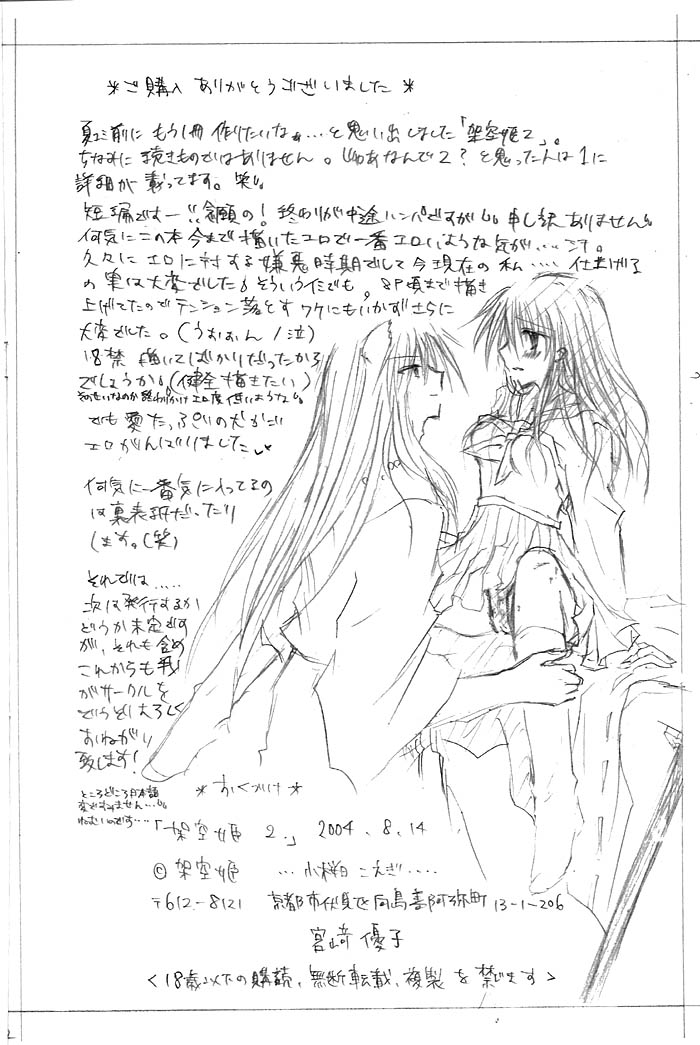 ＊ご購入 ありがとうございました＊
夏コミ前に もう1冊 作りたいなぁ…と思い出しました「架空姫2」。
ちなみに 続きものではありません。じゃあなんで2？と思った人は1に
詳細が載ってます。笑
短編ですー!!念願の！終わりが中途ハンパですが 申し訳ありません
何気にこの本今まで描いたエロで一番エロいような気が…です。
久々にエロに対する嫌悪時期でして今現在の私…仕上げる
の実は大変でした 8P頃まで描き
上げてたのでテンション落とすワケにもいかずさらに
大変でした。(うおぉん/泣)
18禁 描いてばかりだったから
でしょうか。(健全描きたい)
でも愛たっぷりの
エロがんばりました
何気に一番気に入ってるの
は裏表紙だったり
します。(笑)
それでは.....
次は発行するか
どうか未定です
が、それも含め
これからも我
がサークルを
どうぞよろしく
おねがい
致します！
ところどころ日本語
変ですみません…
ねむいのです…
＊おくづけ＊
「架空姫 2.」 2004.8.14
© 架空姫 …小桜 こえぎ....
〒612-8121 京都市伏見区向島善阿弥町13-1-206
宮崎 優子
<18歳以下の購読、無断転載、複製を禁じます>